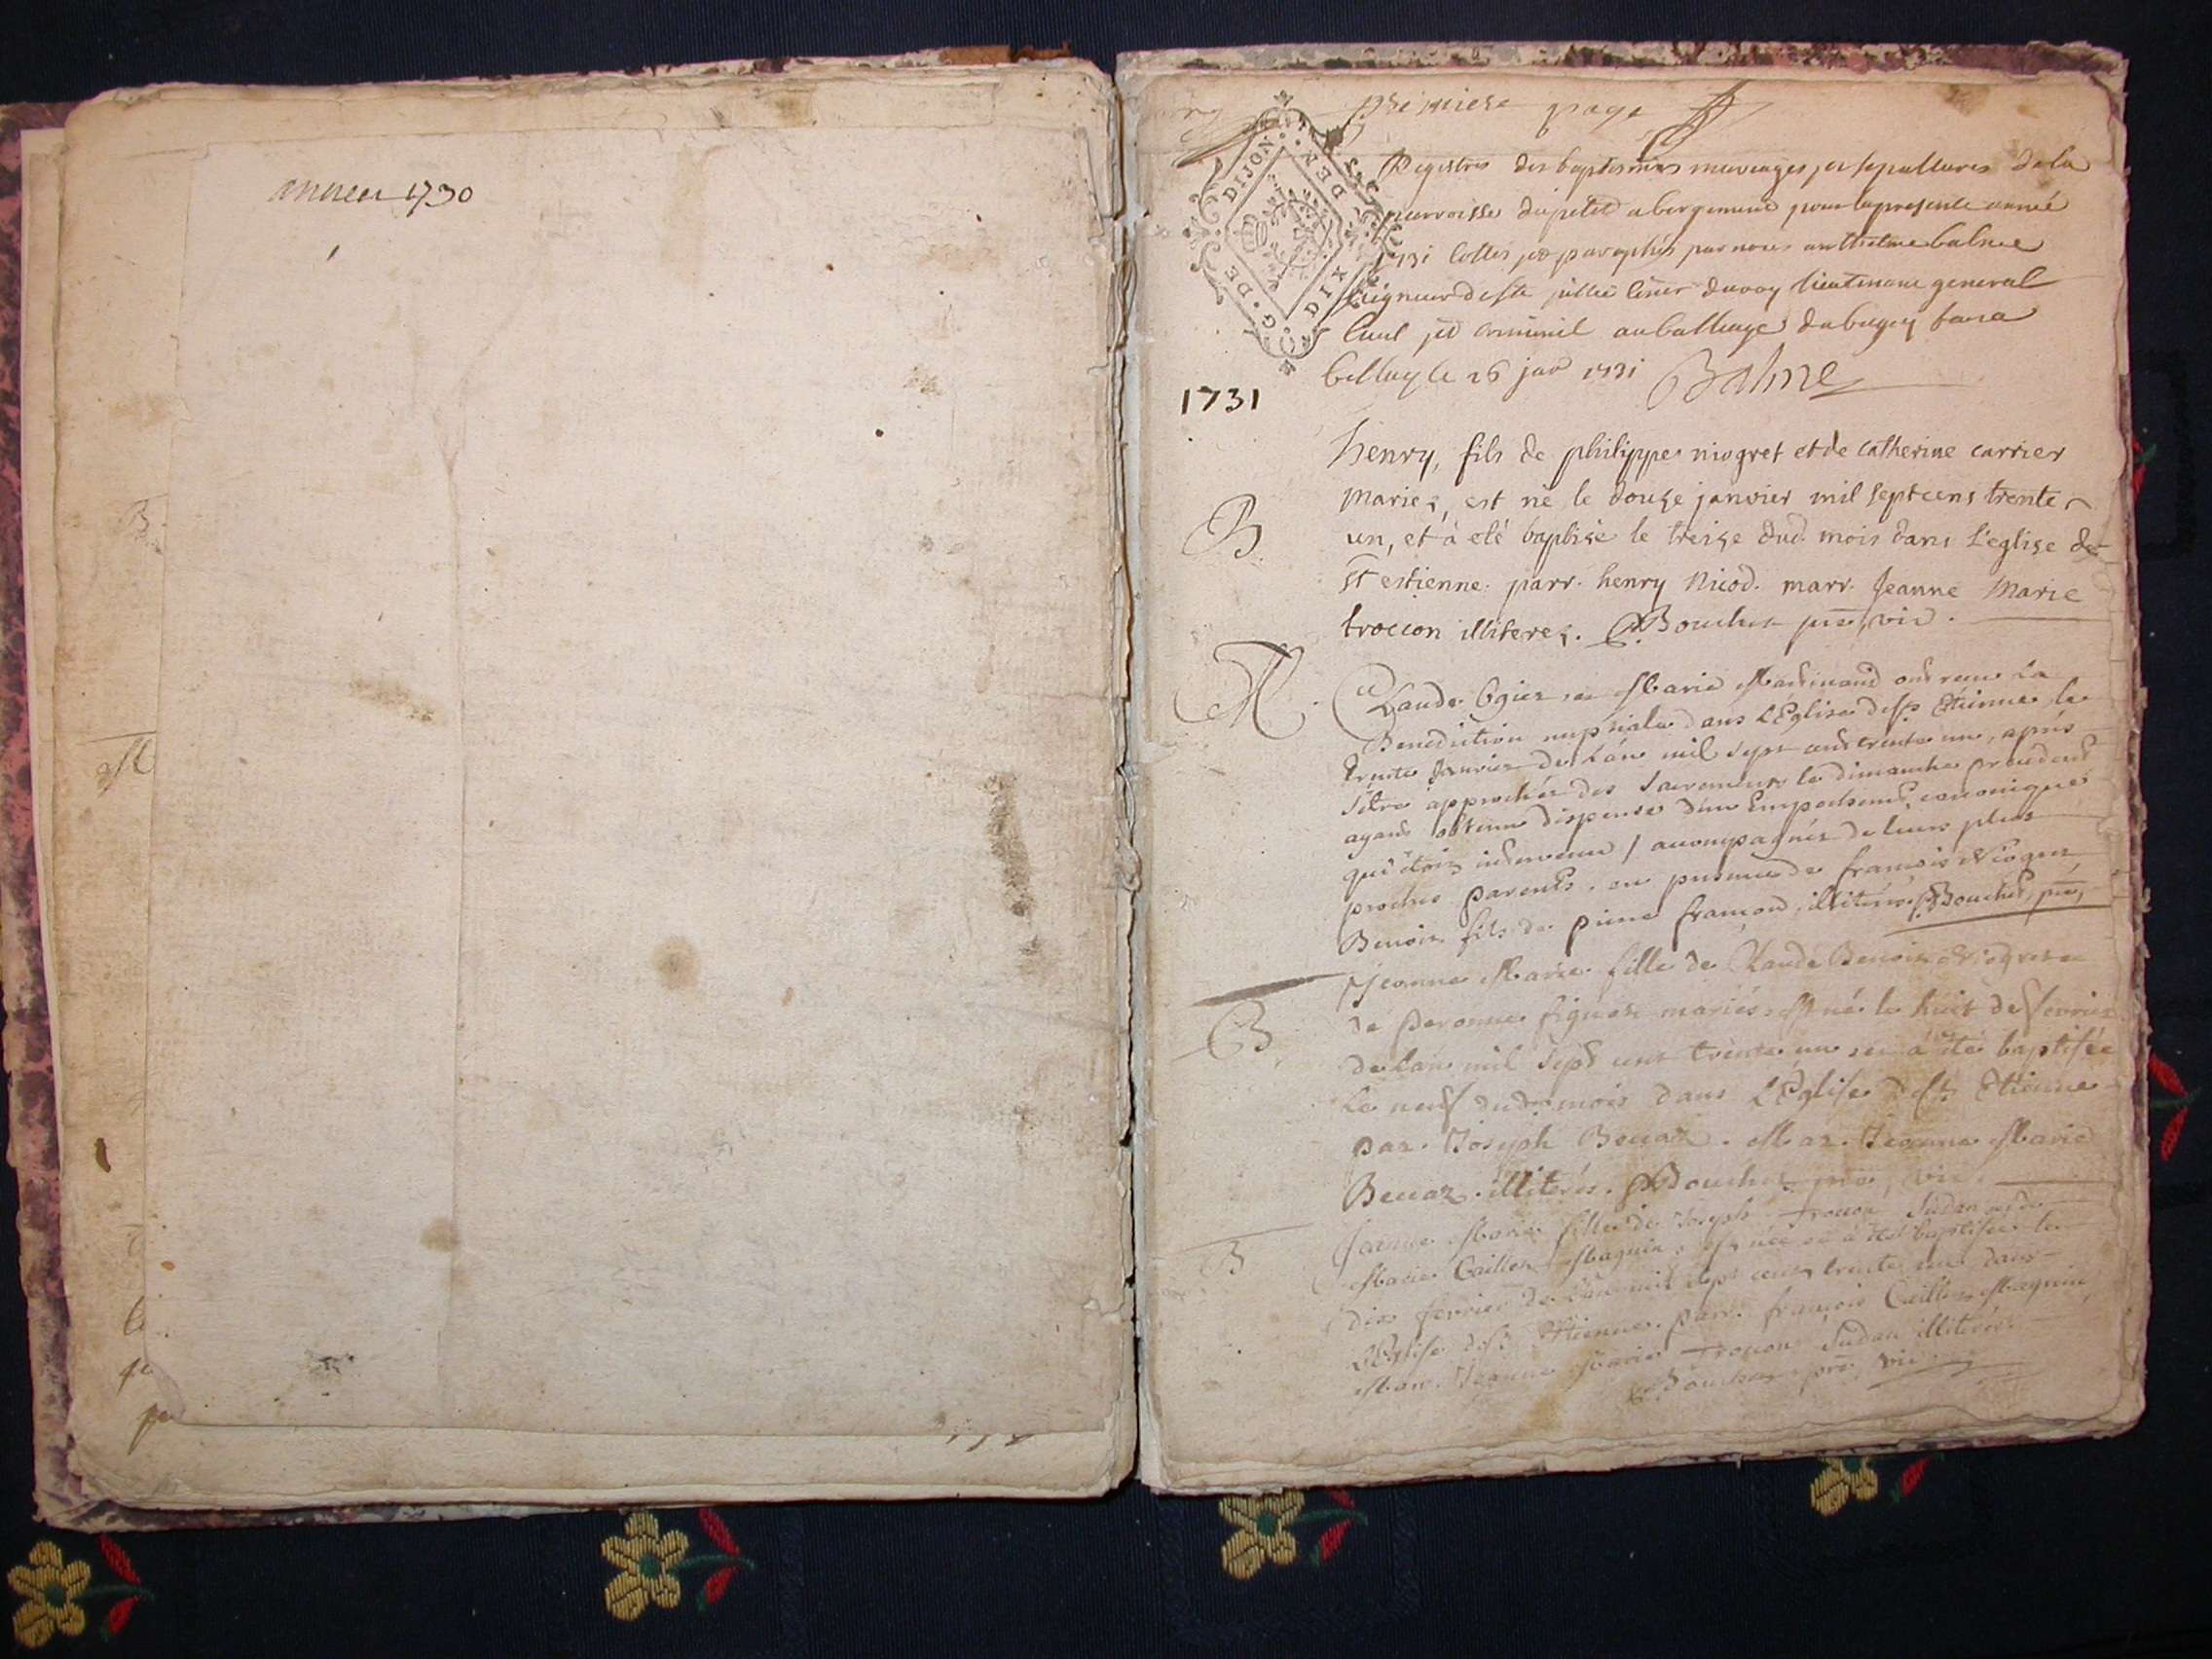 annee 1730
premiere page
G. DE DIJON
DEN DIX
Registres des baptesmes mariages et sepultures de la
parroisse du petit abergement pour la presente année
1731 cottés et paraphés par nous anthelme balme
seigneur de ste jullie Coner du roy lieutenant general
Civil et criminel au balliage du bugey fait a
belley le 26 janv 1731 Balme
1731
B
henry, fils de philippe niogret et de catherine carrier
mariez, est né le douze janvier mil sept cens trente
un, et à eté baptisé le treize dud. mois dans l'eglise de
st estienne. parr. henry Nicod. marr. Jeanne Marie
troccon illiterez. Bouchet pre, vic.
M
Claude Ogier et Marie Martinand ont reçu La
Benediction nuptiale dans L'Eglise de st Etienne le
trente Janvier de L'an mil sept cent trente un, aprés
s'être approchés des Sacremens le dimanche precedent
ayant obtenu dispense d'un Empechemt. canonique
qui étoit intervenu / accompagnés de leurs plus
proches parents, en presence de françois Niogret
Benoit fils de pierre françon, illiterés. Bouchet, pre,
B
Jeanne Marie fille de Claude Benoit Niogret et
de peronne figuet mariés, est née le huit de fevrier
de L'an mil sept cent trente un et à été baptisée
Le neuf dud. mois dans L'Eglise de st Etienne
par. Joseph Beuaz. Mar. Jeanne Marie
Beuaz. illiterés. Bouchet pre, vic.
B
Jeanne Marie fille de Joseph Troccon Judan et de
Marie Caillon Maguin, est née et à été baptisée le
dix fevrier de L'an mil sept cent trente un dans
L'Eglise de st Etienne. parr. françois Caillon Maguin,
Marr. Jeanne Marie Troccon Judan illiterés.
Bouchet pre, vic.
B
M